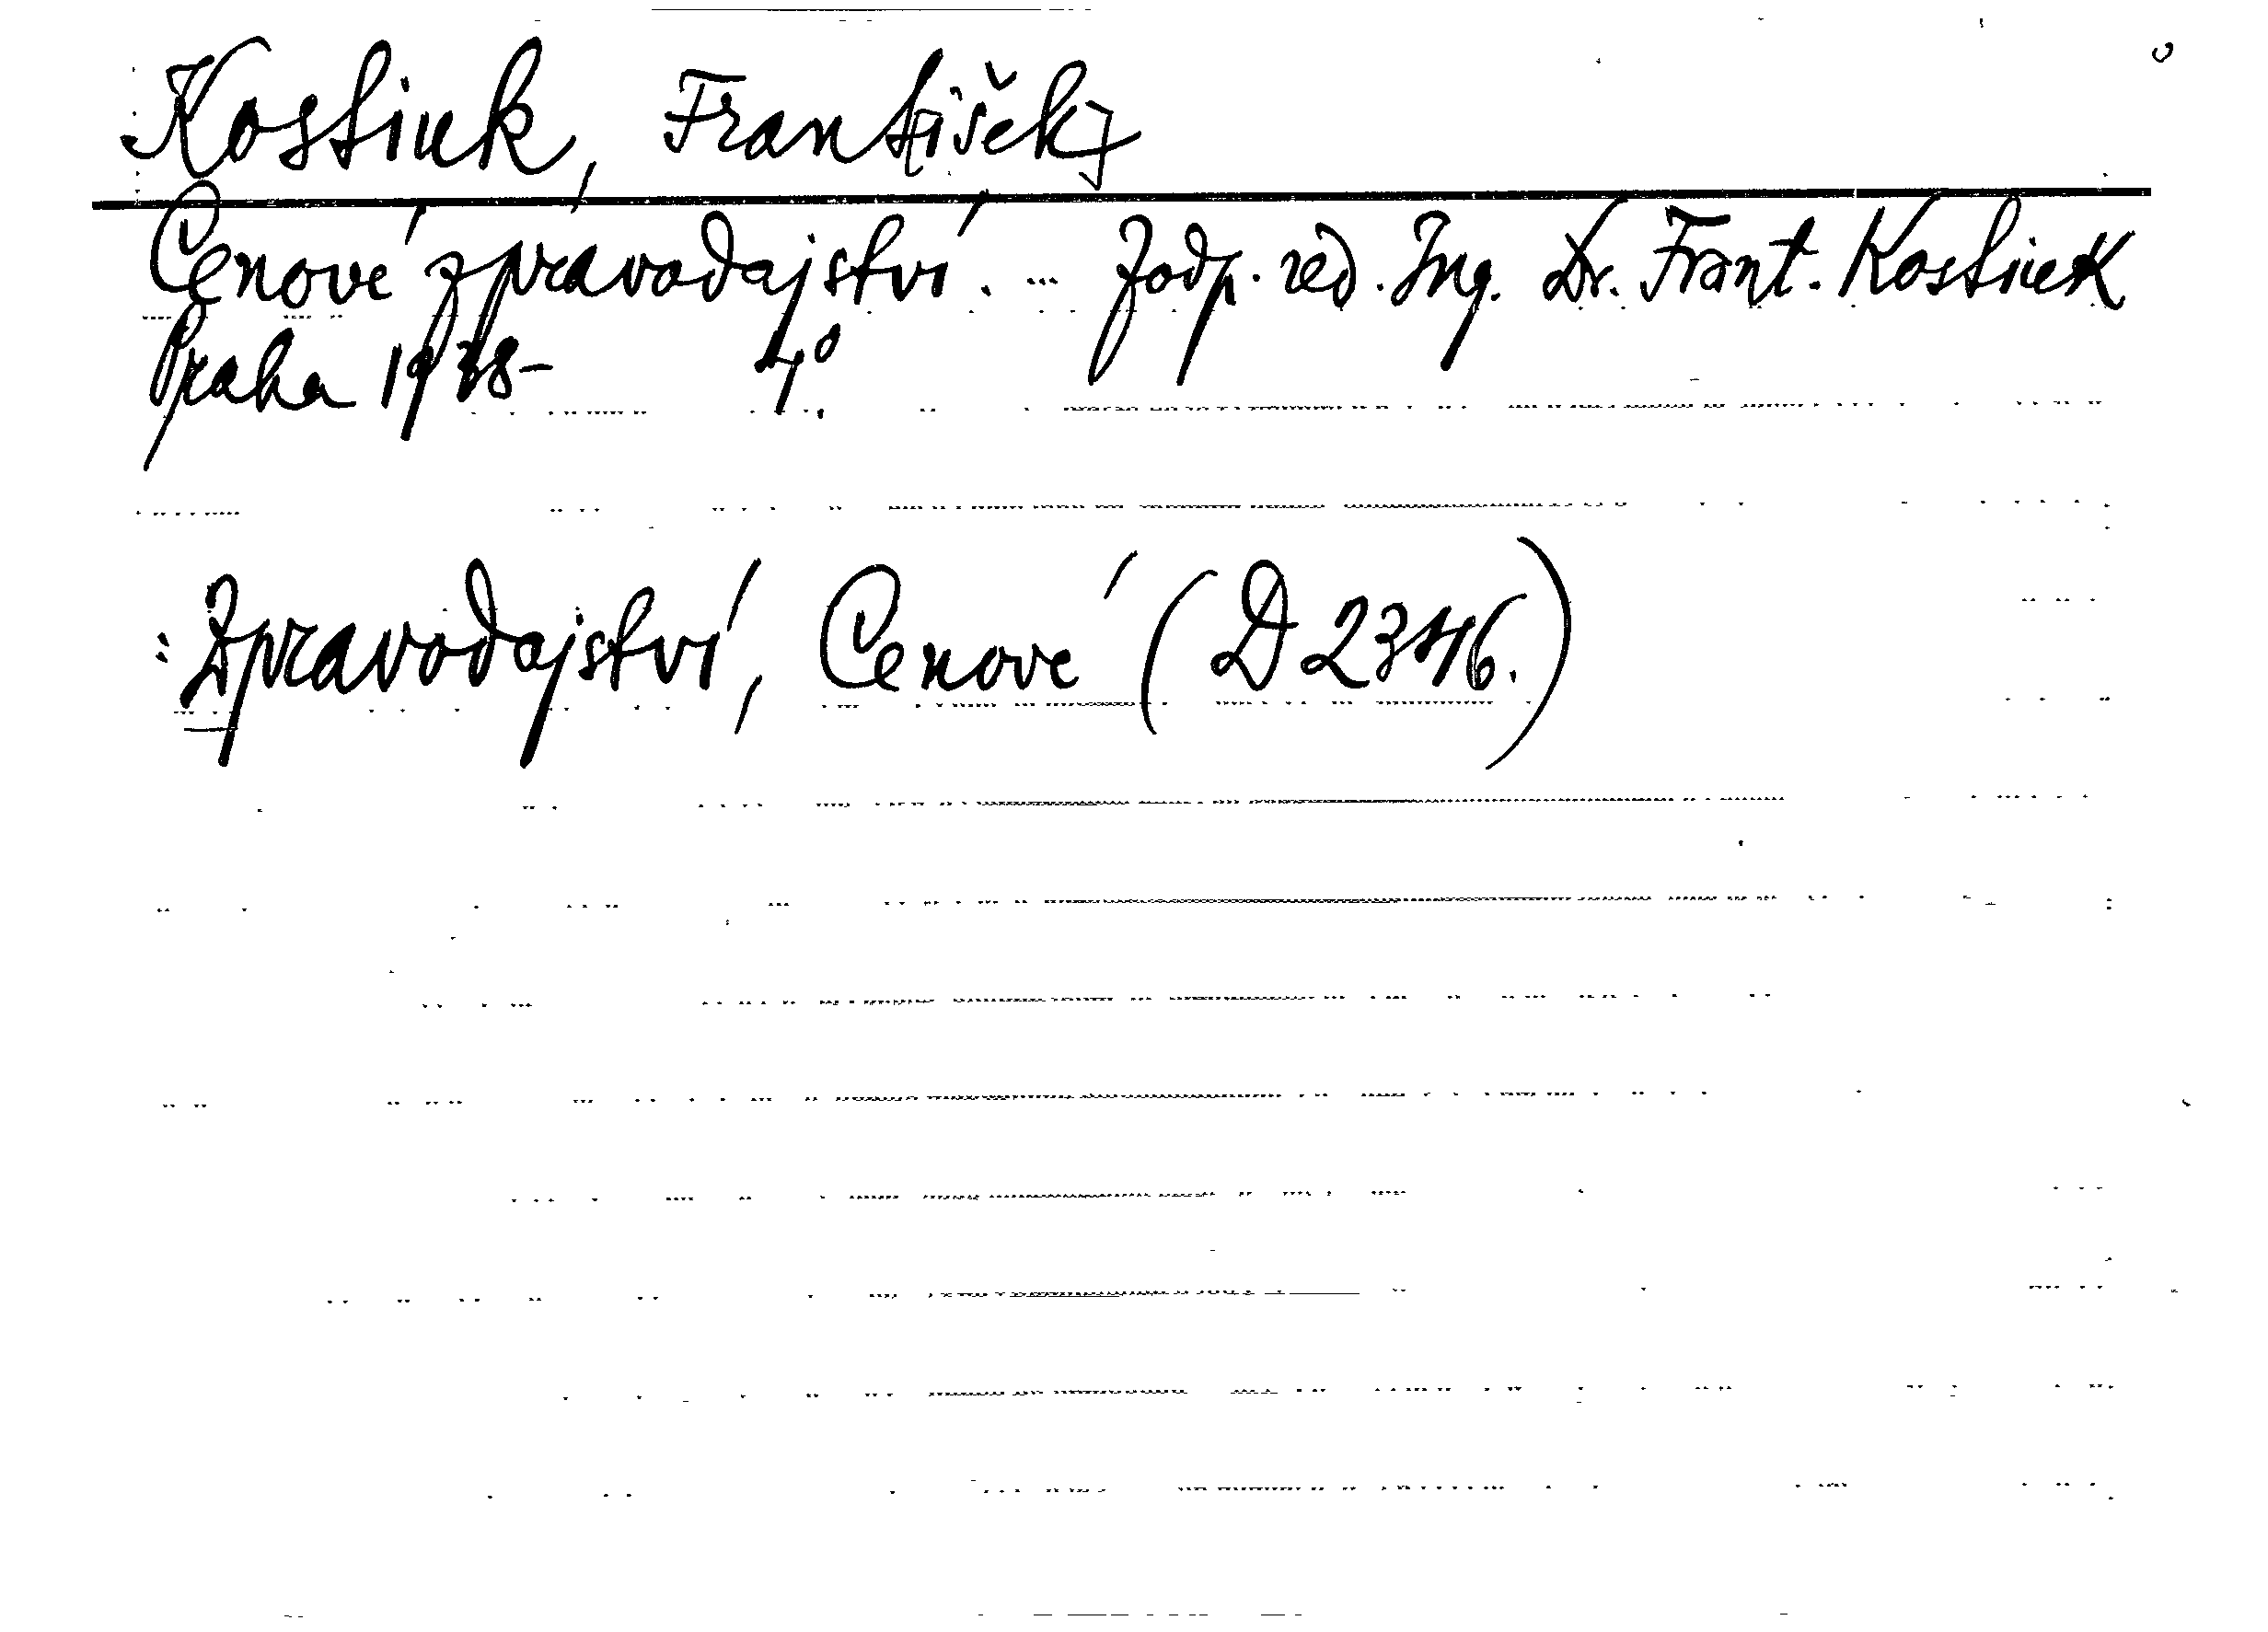 Frant[išek]
Cenové zpravodajství. ... Zodp. red. Ing. Dr. Frant.
Praha 4°
: Zpravodajství, Cenové (D 2346.)